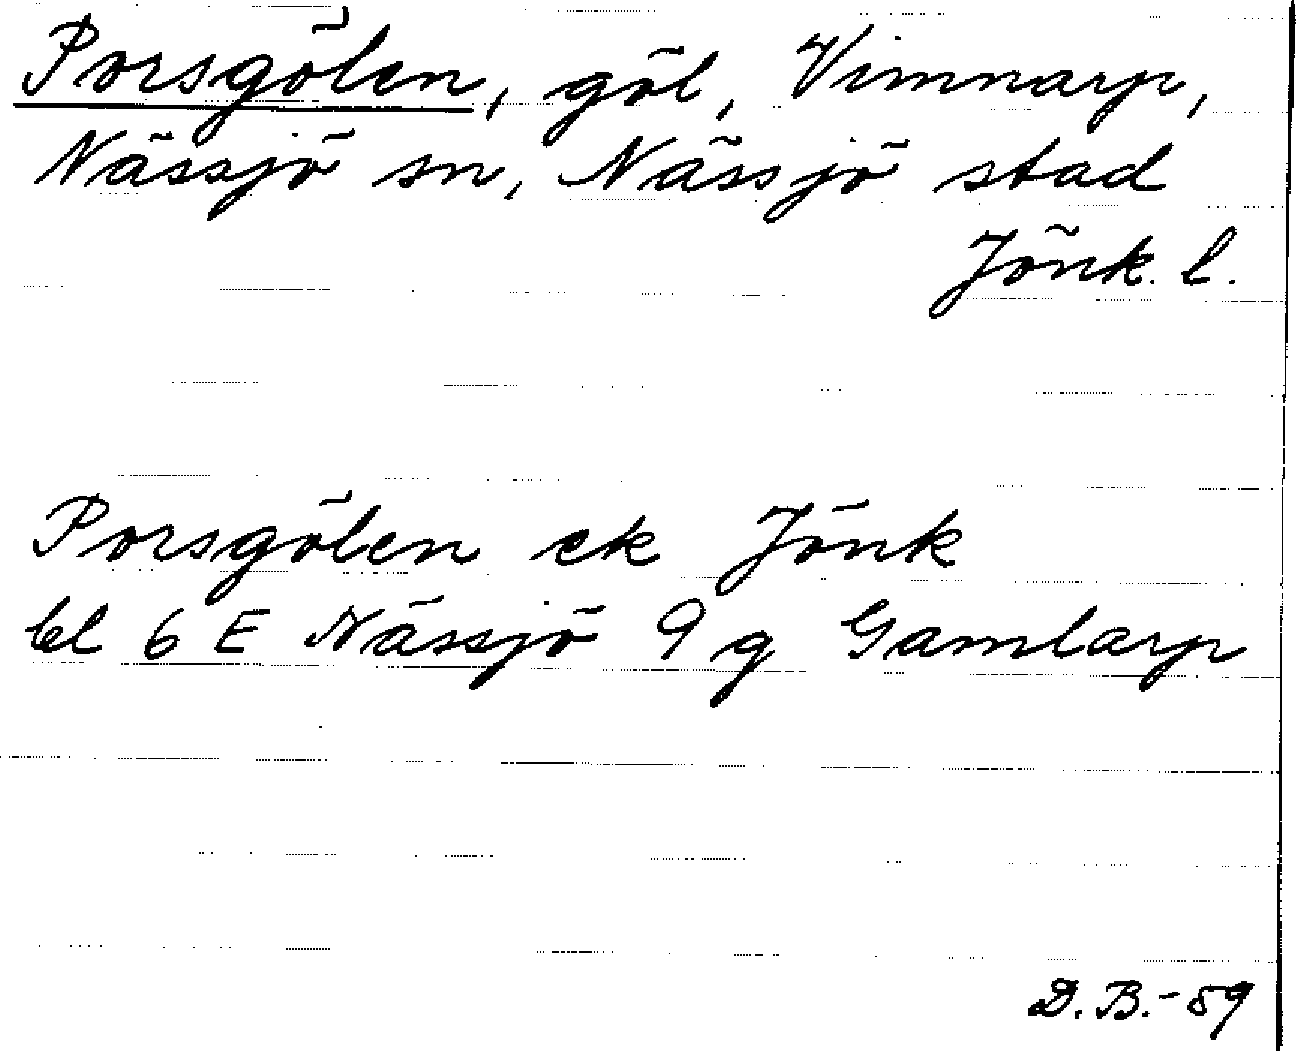 Porsgölen, göl, Vimnarp,
Nässjö sn, Nässjö stad
Jönk. l.
Porsgölen ek Jönk
bl 6 E Nässjö 9 g Gamlarp
D. B. - 59